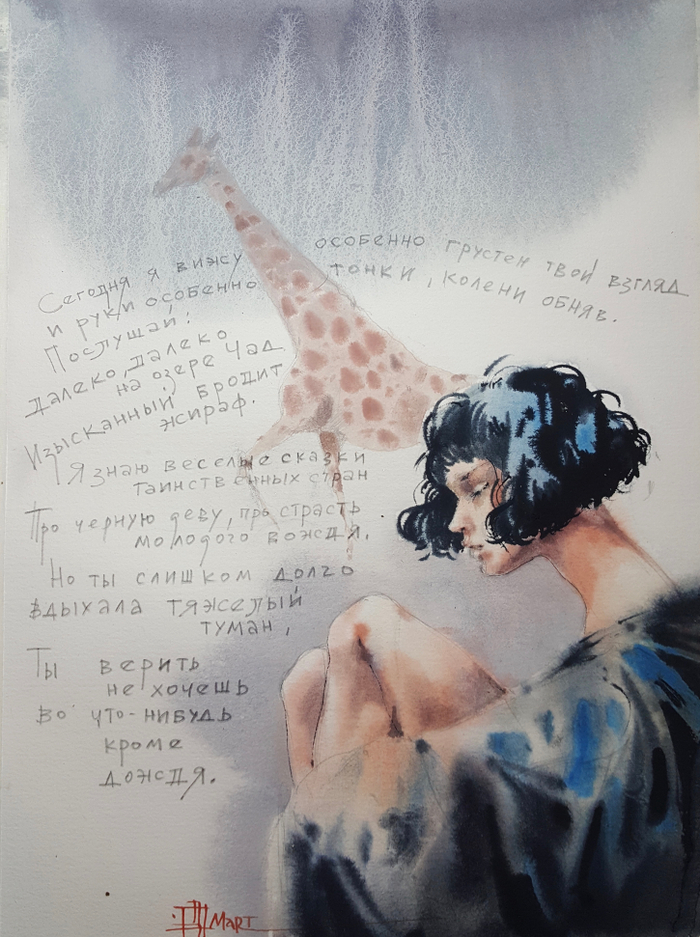 Сегодня я вижу особенно грустен твой взгляд
и руки особенно тонки, колени обняв.
Послушай:
далеко, далеко
на озере Чад
Изысканный бродит
жираф.
Я знаю веселые сказки
таинственных стран
Про черную деву, про страсть
молодого вождя,
Но ты слишком долго
вдыхала тяжелый
туман,
Ты верить
не хочешь
во что-нибудь
кроме
дождя.
Март